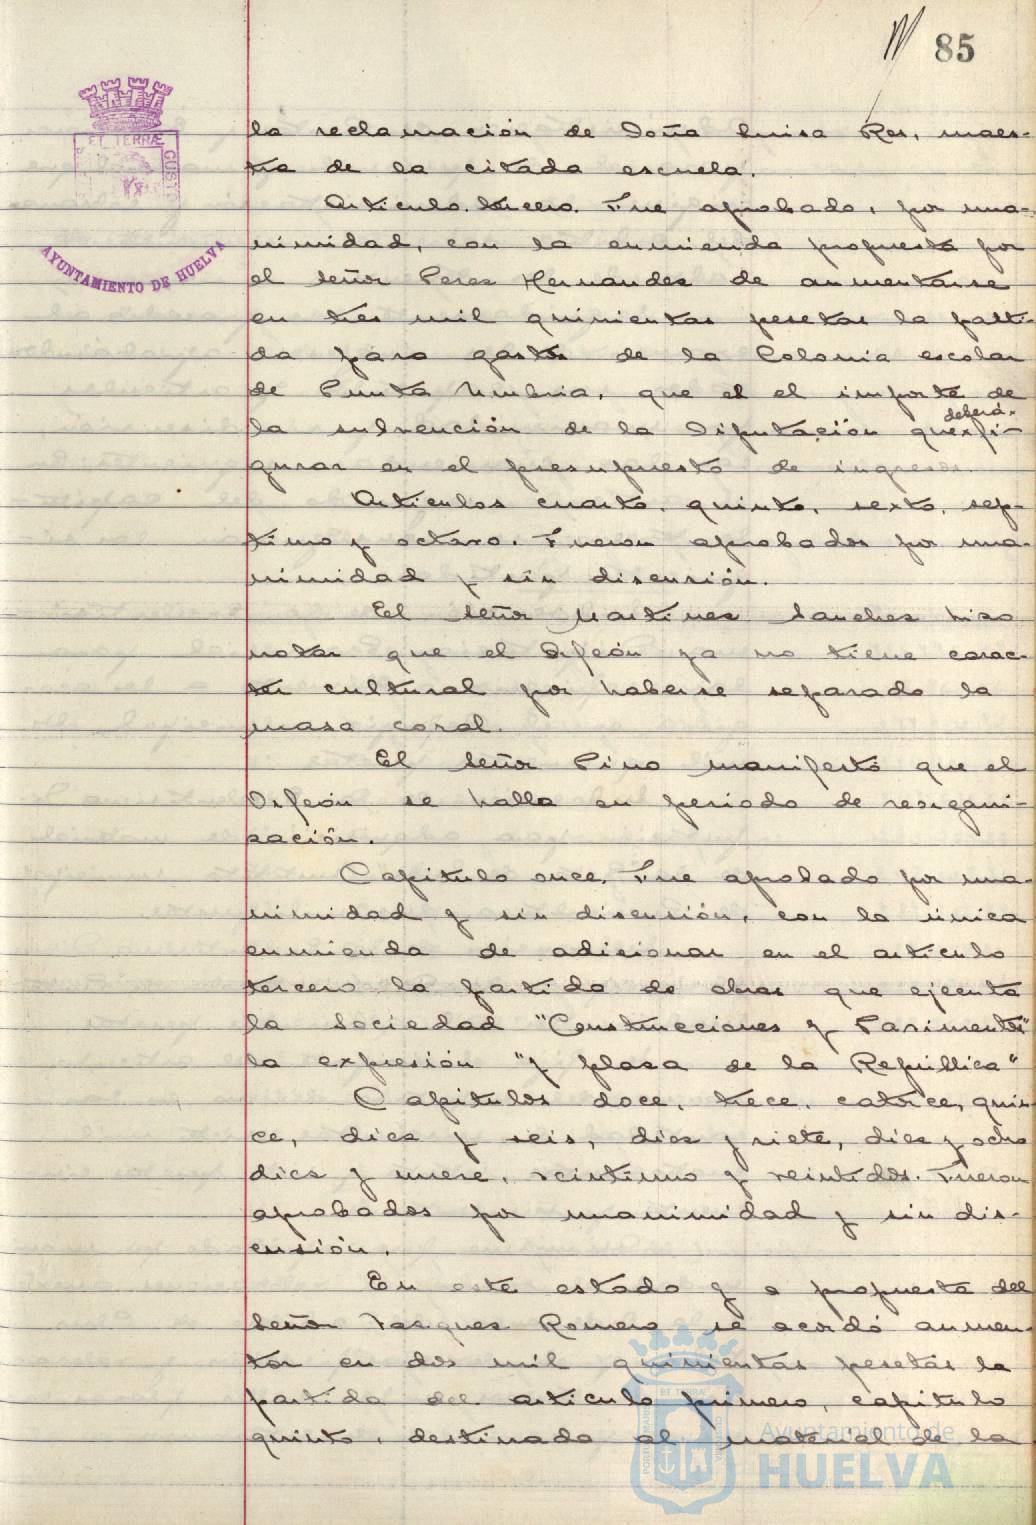 85
ET TERRÆ
CUST
AYUNTAMIENTO DE HUELVA
la reclamación de Doña Luisa Rey, maes-
tra de la citada escuela.
Artículo tercero. Fue aprobado, por una-
nimidad, con la enmienda propuesta por
el señor Peres Hernandes de aumentarse
en tres mil quinientas pesetas la parti-
da para gastos de la Colonia escolar
de Punta Umbria, que es el importe de
la subvención de la Diputación que deberá fi-
gurar en el presupuesto de ingresos.
Artículos cuarto, quinto, sexto, sep-
timo y octavo. Fueron aprobados por una-
nimidad y sin discusión.
El señor Martines Sanches hiso
notar que el Orfeón ya no tiene carac-
ter cultural por haberse separado la
masa coral.
El señor Pino manifestó que el
Orfeón se halla en periodo de reorgani-
zación.
Capitulo once. Fue aprobado por una-
nimidad y sin discusión, con la única
enmienda de adicionar en el articulo
tercero la partida de obras que ejecuta
la Sociedad "Construcciones y Pavimentos"
la expresión "y plasa de la República"
Capitulos doce, trece, catorce, quin-
ce, dies y seis, dies y siete, dies y ocho
dies y nueve, veintiuno y veintidós. Fueron
aprobados por unanimidad y sin dis-
cusión.
En este estado y a propuesta del
señor Vasques Romero se acordó aumen-
tar en dos mil quinientas pesetas la
partida del articulo primero, capitulo
quinto, destinado al material de la
Ayuntamiento de
HUELVA